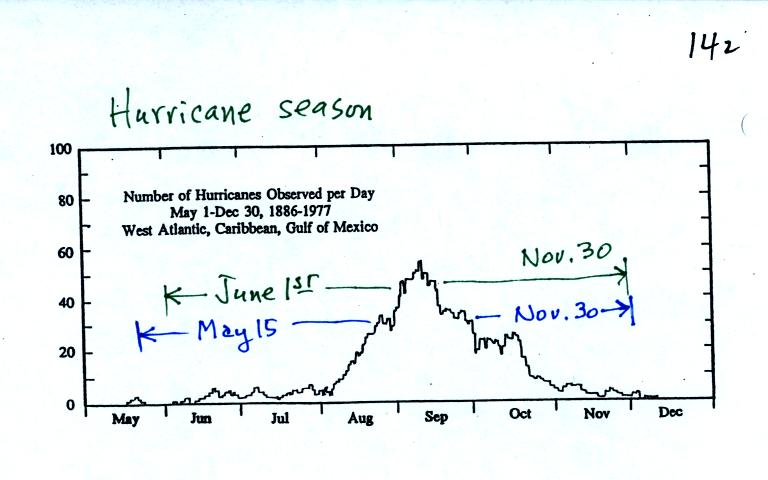 142
Hurricane season
100
Number of Hurricanes Observed per Day
May 1-Dec 30, 1886-1977
West Atlantic, Caribbean, Gulf of Mexico
80
60
Nov. 30
June 1st
40
May 15
Nov. 30
20
0
May Jun Jul Aug Sep Oct Nov Dec